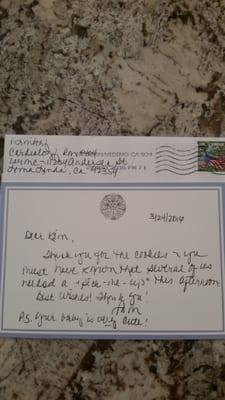 Tom Hay
Cardiology, Rm
LLUMC - 11234 Anderson St
Loma Linda, Ca 92354
BERNARDINO CA 924
3/24/2014
Dear Kim,
Thank you for the cookies - you
must have known that several of us
needed a "pick-me-up" this afternoon
Best wishes! Thank you!
Tom
PS. Your baby is very cute!